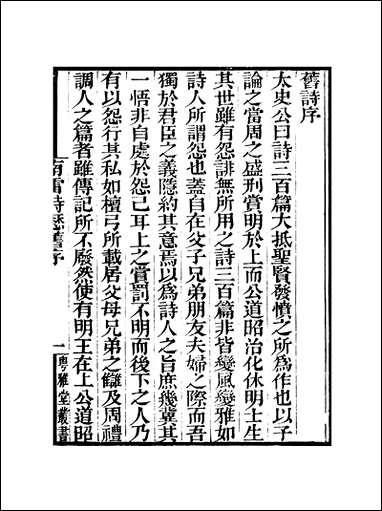 舊詩序
太史公曰詩三百篇大抵聖賢發憤之所爲作也以予
論之當周之盛刑賞明於上而公道昭治化休明士生
其世雖有怨誹無所用之詩三百篇非皆變風變雅如
詩人所謂怨也蓋自在父子兄弟朋友夫婦之際而吾
獨於君臣之義隱約其意焉以爲詩人之旨庶幾冀其
一悟非自處於怨己耳上之賞罰不明而後下之人乃
有以怨行其私如檀弓所載居父母兄弟之讎及周禮
調人之篇者雖傳記所不廢然使有明王在上公道昭
南雷詩歷舊序
一
粵雅堂叢書